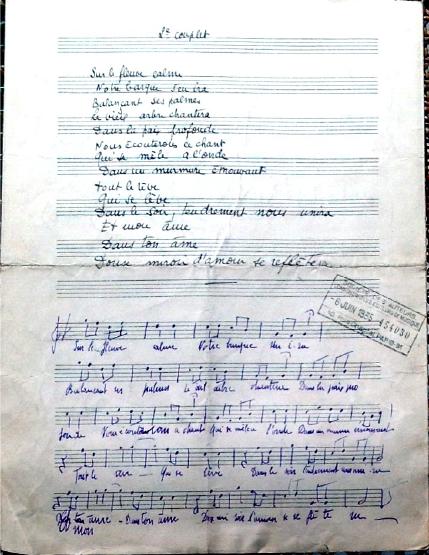 2e couplet
Sur le fleuve calme
Notre barque s'en ira
Balançant ses palmes
Le vieil arbre chantera
Dans la paix profonde
Nous écouterons ce chant
Qui se mêle à l'onde
Dans un murmure émouvant
Tout le rêve
Qui se lève
Dans le soir tendrement nous unira
Et mon âme
Dans ton âme
Doux miroir d'amour se reflétera
-6 JUIN 1935
Sur le fleuve calme Notre barque s'en i-ra
Balançant ses palmes Le vieil arbre chantera Dans la paix pro
fonde Nous écouterons ce chant Qui se mêle à l'onde Dans un murmure émouvant
Tout le rêve Qui se lève Dans le soir tendrement nous u-ra
ton âme - Dans ton âme Doux mi roir d'amour se re flé te ra
mon